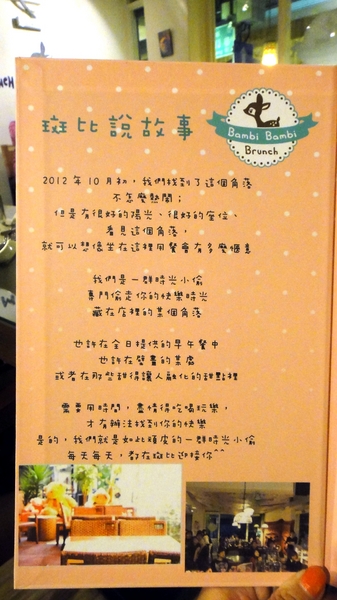 斑比說故事
Bambi Bambi
Brunch
2012年10月初，我們找到了這個角落
不怎麼熱鬧；
但是有很好的陽光、很好的座位、
看見這個角落，
就可以想像坐在這裡用餐會有多麼愜意
我們是一群時光小偷
專門偷走你的快樂時光
藏在店裡的某個角落
也許在全日提供的早午餐中
也許在壁畫的某處
或者在那些甜得讓人融化的甜點裡
需要用時間，盡情得吃喝玩樂，
才有辦法找到你的快樂
是的，我們就是如此頑皮的一群時光小偷
每天每天，都在斑比迎接你^^